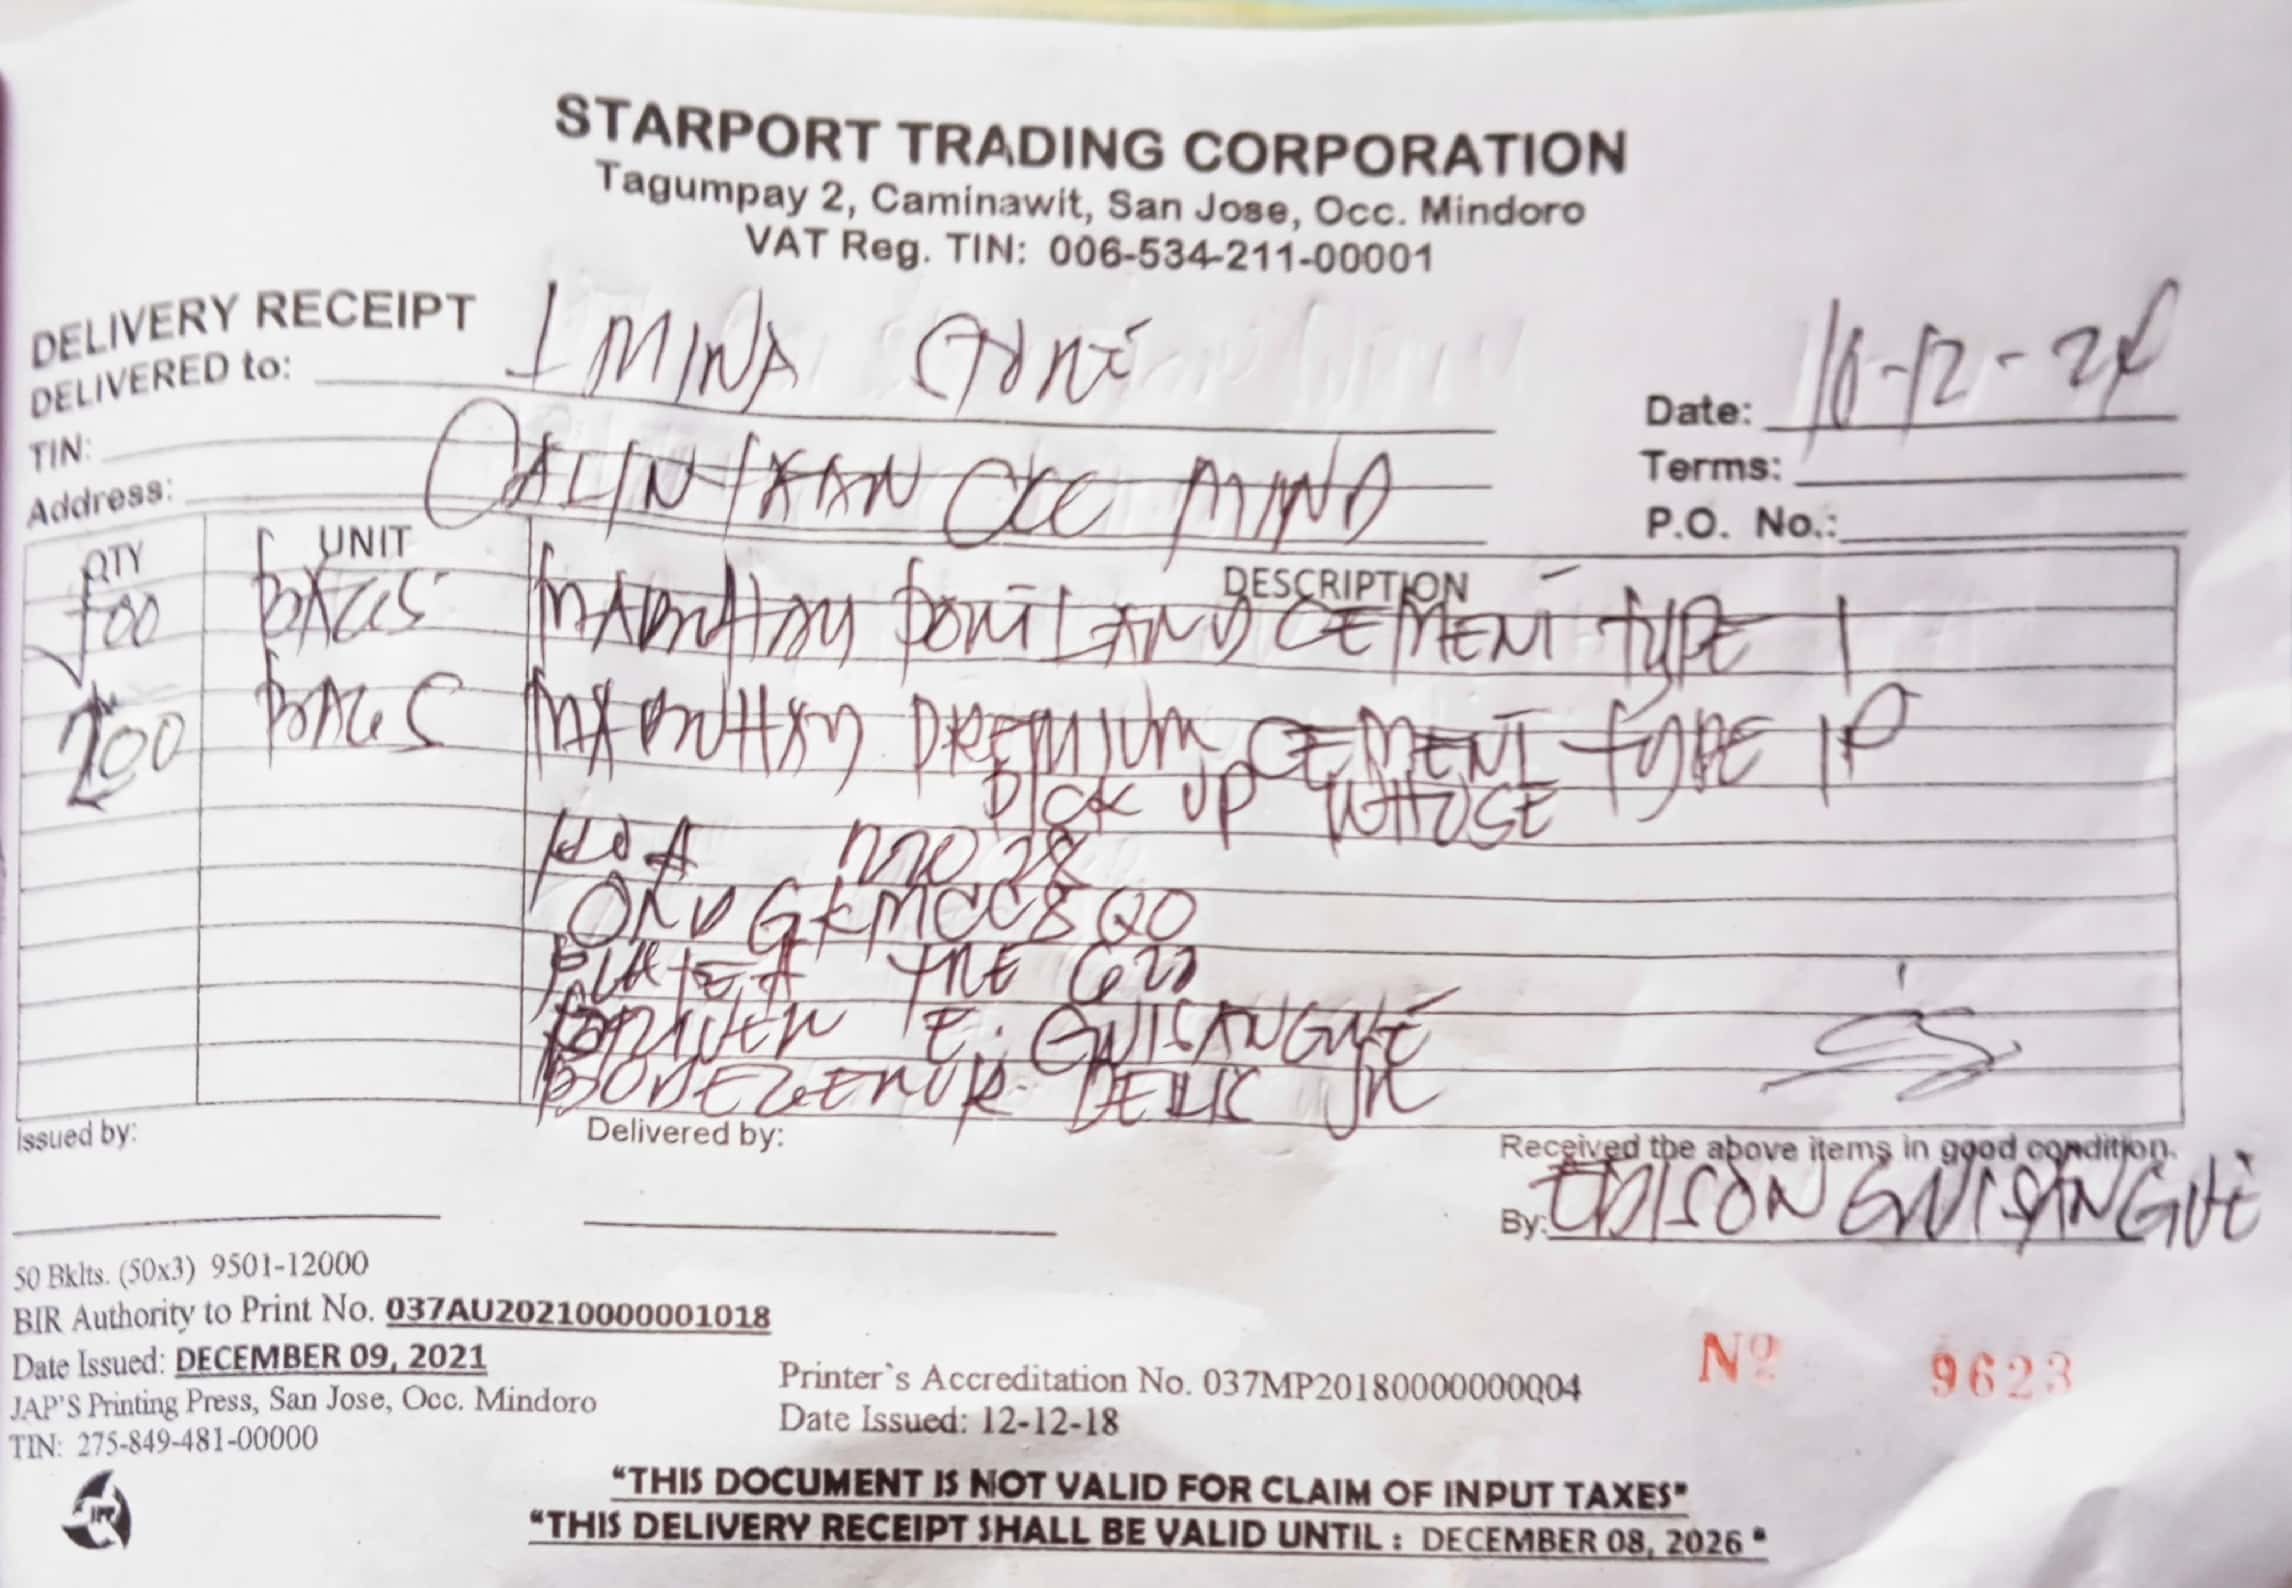 STARPORT TRADING CORPORATION
Tagumpay 2, Caminawit, San Jose, Occ. Mindoro
VAT Reg. TIN: 006-534-211-00001
DELIVERY RECEIPT
DELIVERED to: IMINA
TIN:
Address: CALINTAAN OCC MIND
Date:
Terms:
P.O. No.:
QTY UNIT DESCRIPTION
BAGS PORTLAND CEMENT TYPE 1
200 BAGS PREMIUM CEMENT TYPE 1P
PICK UP WHOSE
PLATE #
E. GUISANGUE
JR
Issued by:
Delivered by:
Received the above items in good condition.
By: EDISON GUISANGUE
50 Bklts. (50x3) 9501-12000
BIR Authority to Print No. 037AU20210000001018
Date Issued: DECEMBER 09, 2021
JAP'S Printing Press, San Jose, Occ. Mindoro
TIN: 275-849-481-00000
Printer's Accreditation No. 037MP20180000000004
Date Issued: 12-12-18
Nº 9623
"THIS DOCUMENT IS NOT VALID FOR CLAIM OF INPUT TAXES"
"THIS DELIVERY RECEIPT SHALL BE VALID UNTIL : DECEMBER 08, 2026"